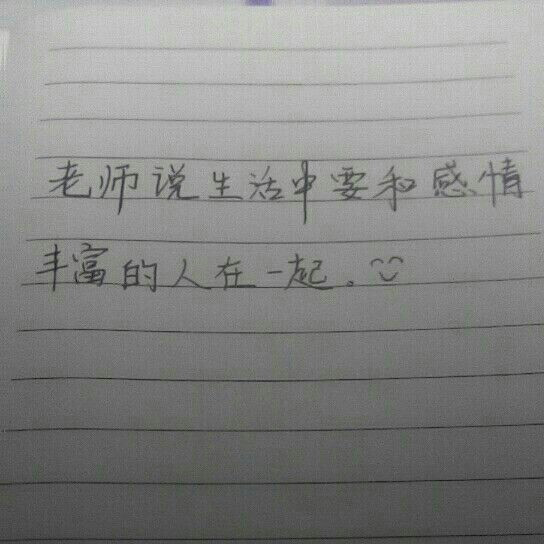 老师说生活中要和感情
丰富的人在一起.